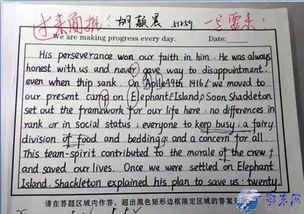 We are making progress every day. Date:
His perseverance won our faith in him. He was always
honest with us and never gave way to disappointment
even when thip sank. On Apile 19th 1916 we moved to
our present camp on Elephant Island. Soon Shackleton
set out the framework for our life here: no differences in
rank or in social status; everyone to keep busy; a fairy
division of food and bedding; and a concern for all.
This team-spirit contributed to the morale of the crew
and saved our lives. Once we were settled on Elephant
Island, Shackleton explained his plan to save us: twenty
请在答题区域内作答，超出黑色矩形边框限定区域的答案无
鄂东网